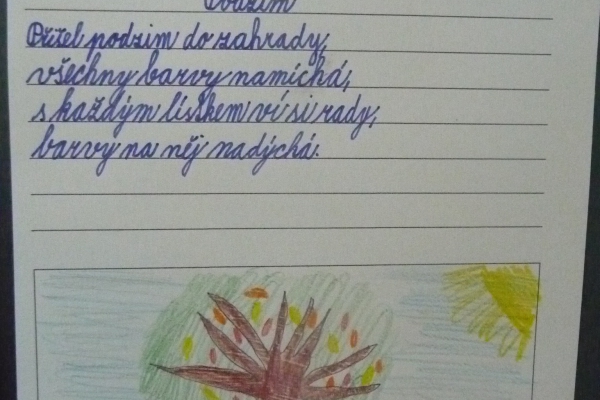 Podzim
Přišel podzim do zahrady,
všechny barvy namíchá,
s každým lístkem ví si rady,
barvy na něj nadýchá.